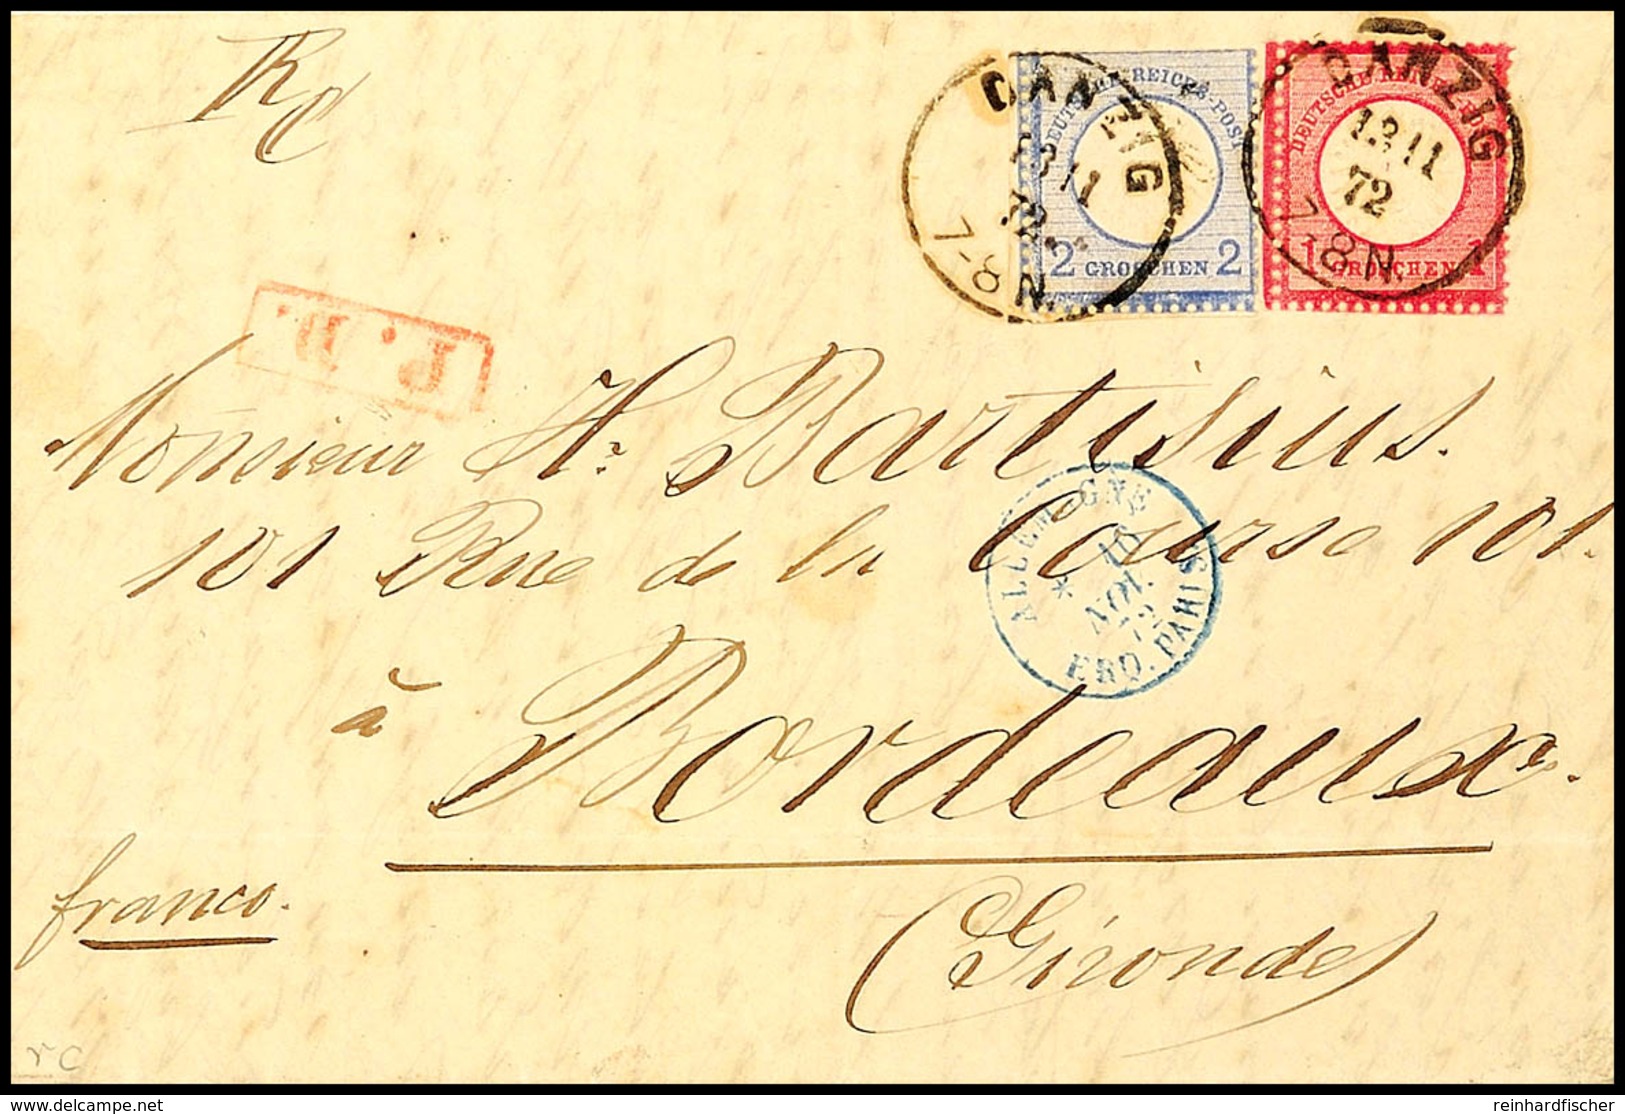 DANZIG
7-8 N.
DEUTSCHE REICHS-POST
2 GROSCHEN 2
DANZIG
13 11
72
7-8 N.
DEUTSCHE REICHS-POST
1 GROSCHEN 1
P. D.
Monsieur H. Bartisius.
101 Rue de la Course 101.
ALLEMAGNE
16
NOV.
72
ERQ. PARIS
à Bordeaux.
franco.
(Gironde)
delcampe.net
reinhardfischer